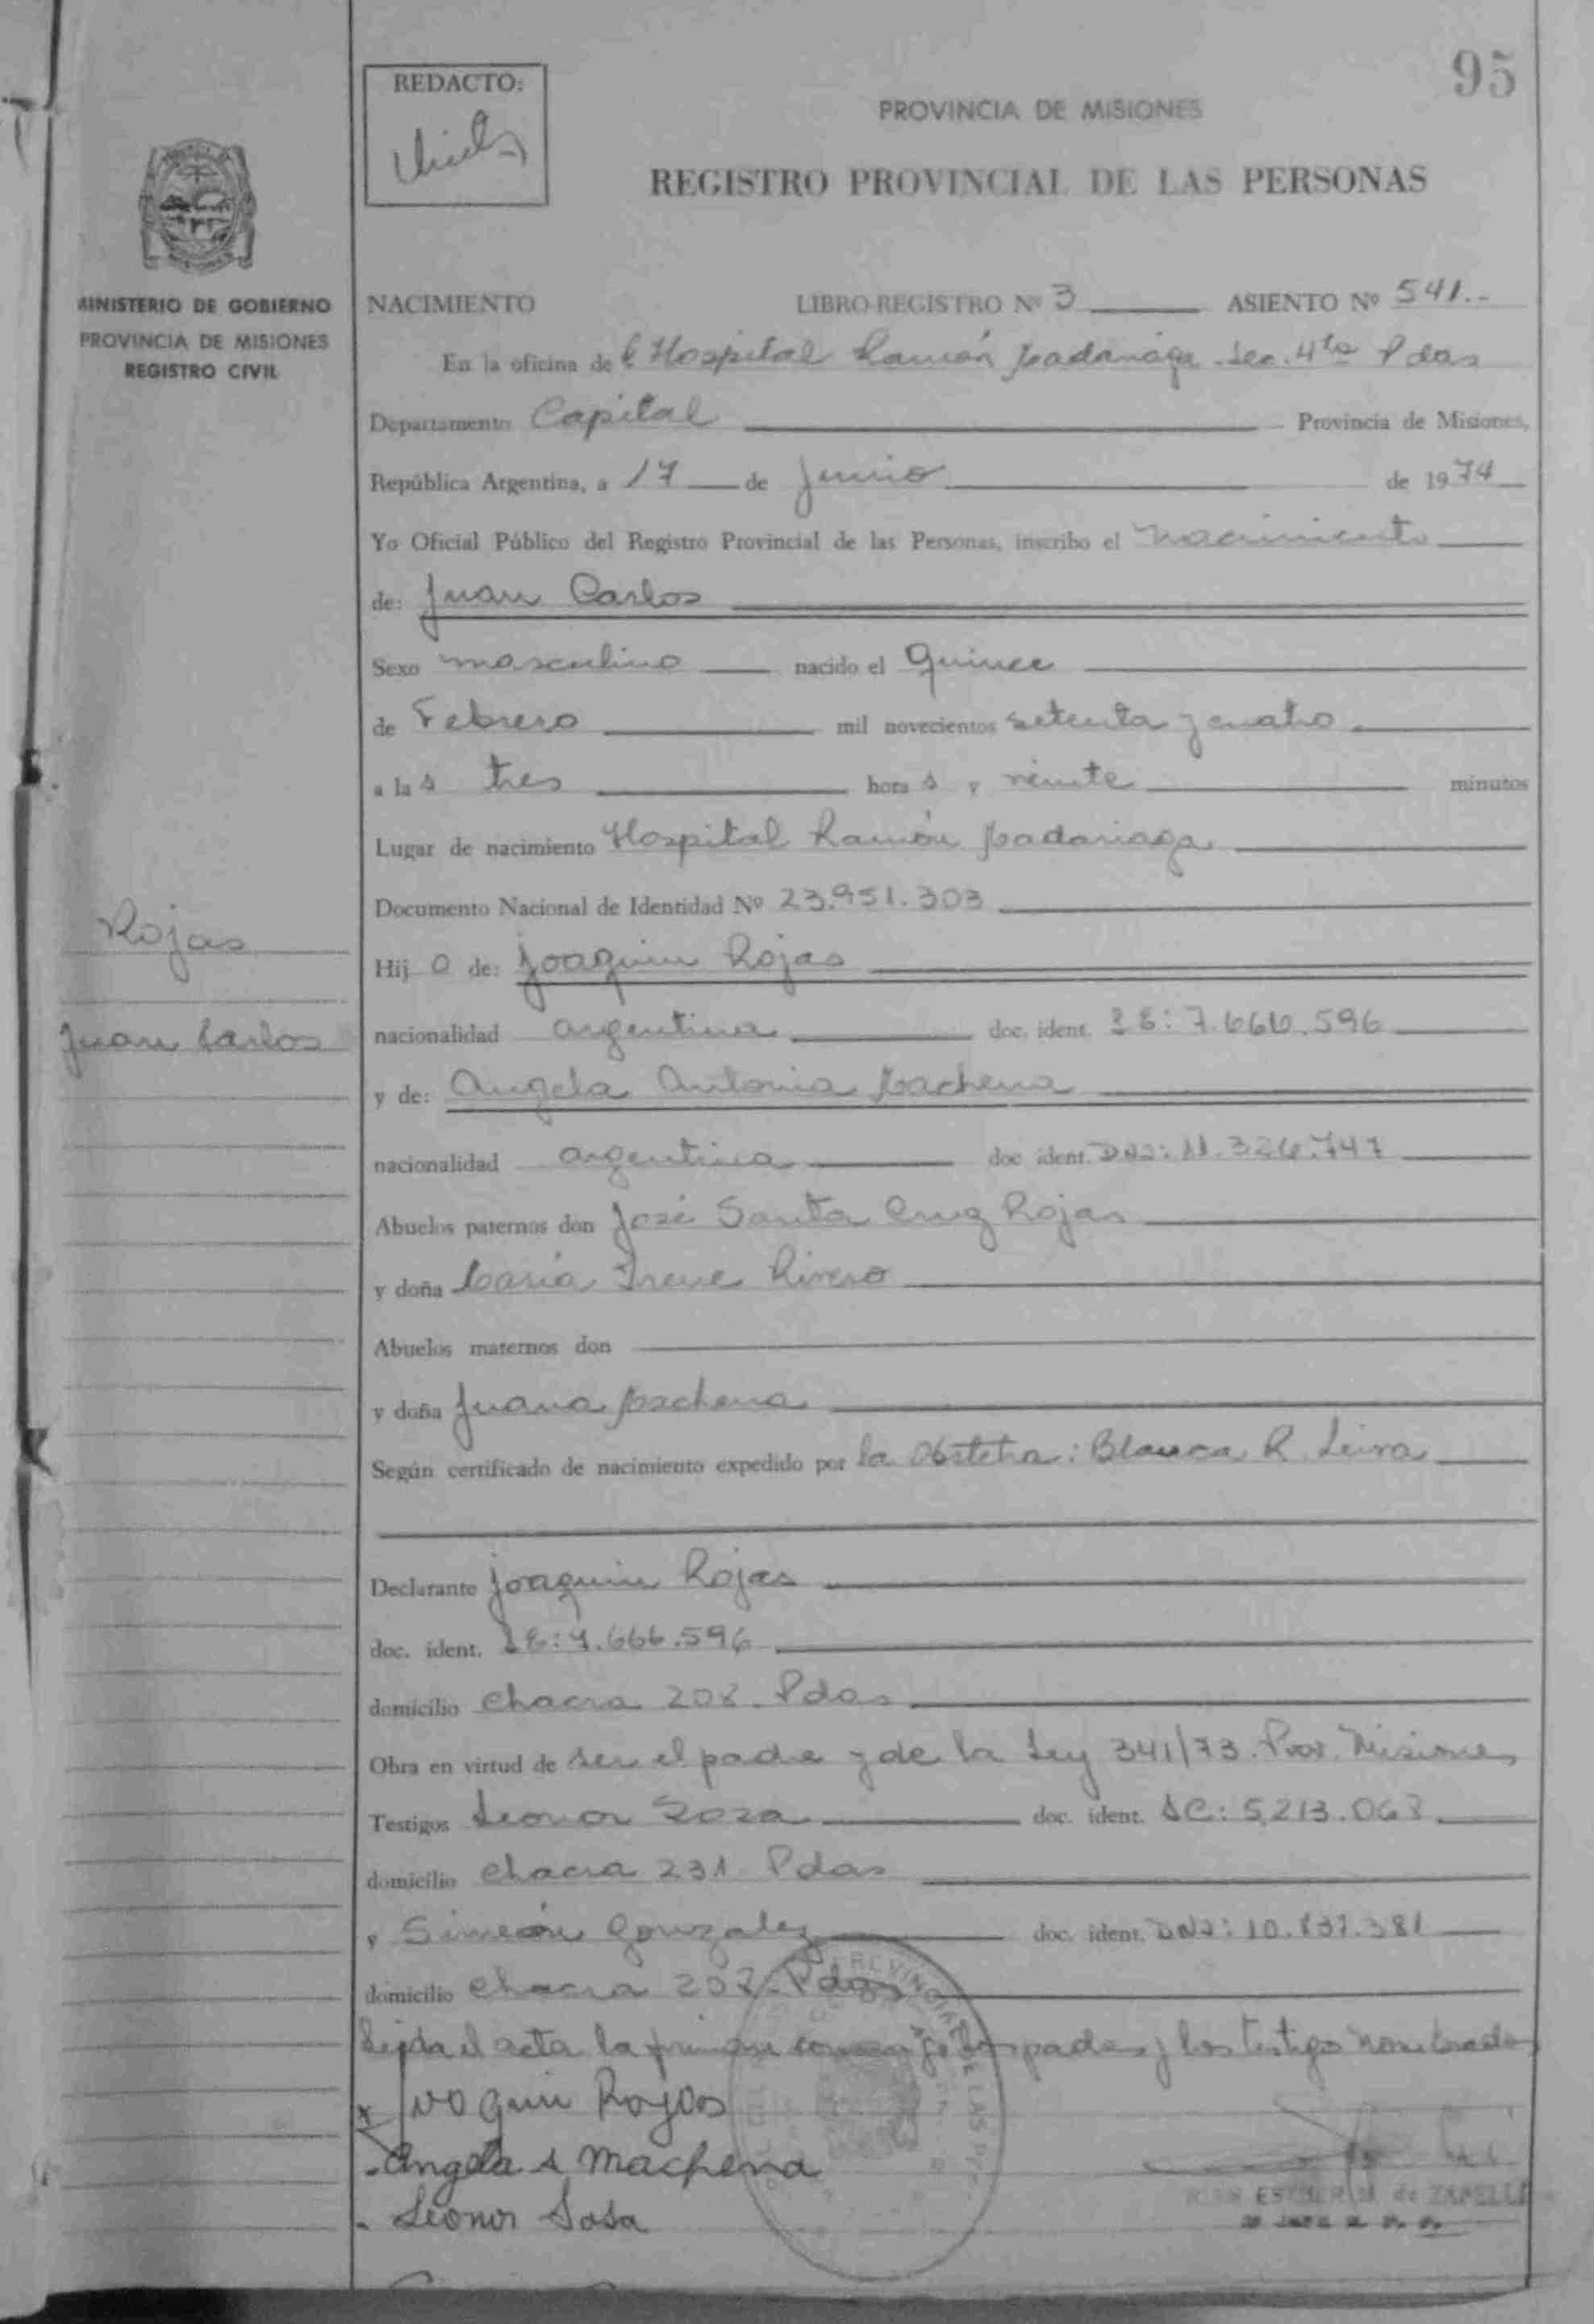 95
REDACTO:
PROVINCIA DE MISIONES
REGISTRO PROVINCIAL DE LAS PERSONAS
MINISTERIO DE GOBIERNO
PROVINCIA DE MISIONES
REGISTRO CIVIL
NACIMIENTO LIBRO-REGISTRO Nº 3 ASIENTO Nº 541.-
En la oficina de Hospital Ramón Madariaga. Sec. 4ta Pdas
Departamento Capital Provincia de Misiones,
República Argentina, a 17 de Junio de 1974
Yo Oficial Público del Registro Provincial de las Personas, inscribo el nacimiento
de: Juan Carlos
Sexo masculino nacido el quince
de Febrero mil novecientos setenta y cuatro
a las tres horas y veinte minutos
Lugar de nacimiento Hospital Ramón Madariaga
Documento Nacional de Identidad Nº 23.951.303
Rojas
Hijo de: Joaquin Rojas
Juan Carlos
nacionalidad argentina doc. ident. LE: 7.666.596
y de: Angela Antonia Machena
nacionalidad argentina doc ident. DNI: 11.326.747
Abuelos paternos don José Santa Cruz Rojas
y doña Maria Irene Rivero
Abuelos maternos don
y doña Juana Machena
Según certificado de nacimiento expedido por la Obstetra: Blanca R. Leiva
Declarante Joaquin Rojas
doc. ident. LE: 7.666.596
domicilio Chacra 208 Pdas
Obra en virtud de ser el padre y de la Ley 341/73. Prov. Misiones
Testigos Leonor Sosa doc. ident. LC: 5.213.068
domicilio Chacra 231 Pdas
y Simeón Gonzalez doc. ident. DNI: 10.837.381
domicilio Chacra Pdas
Leida el acta la firman los padres y los testigos nombrados
Joaquin Rojas
Angela A Machena
Leonor Sosa
ESTHER M. de ZAPELLI